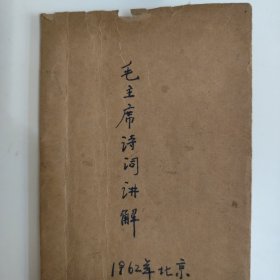 毛主席诗词讲解
1962年北京